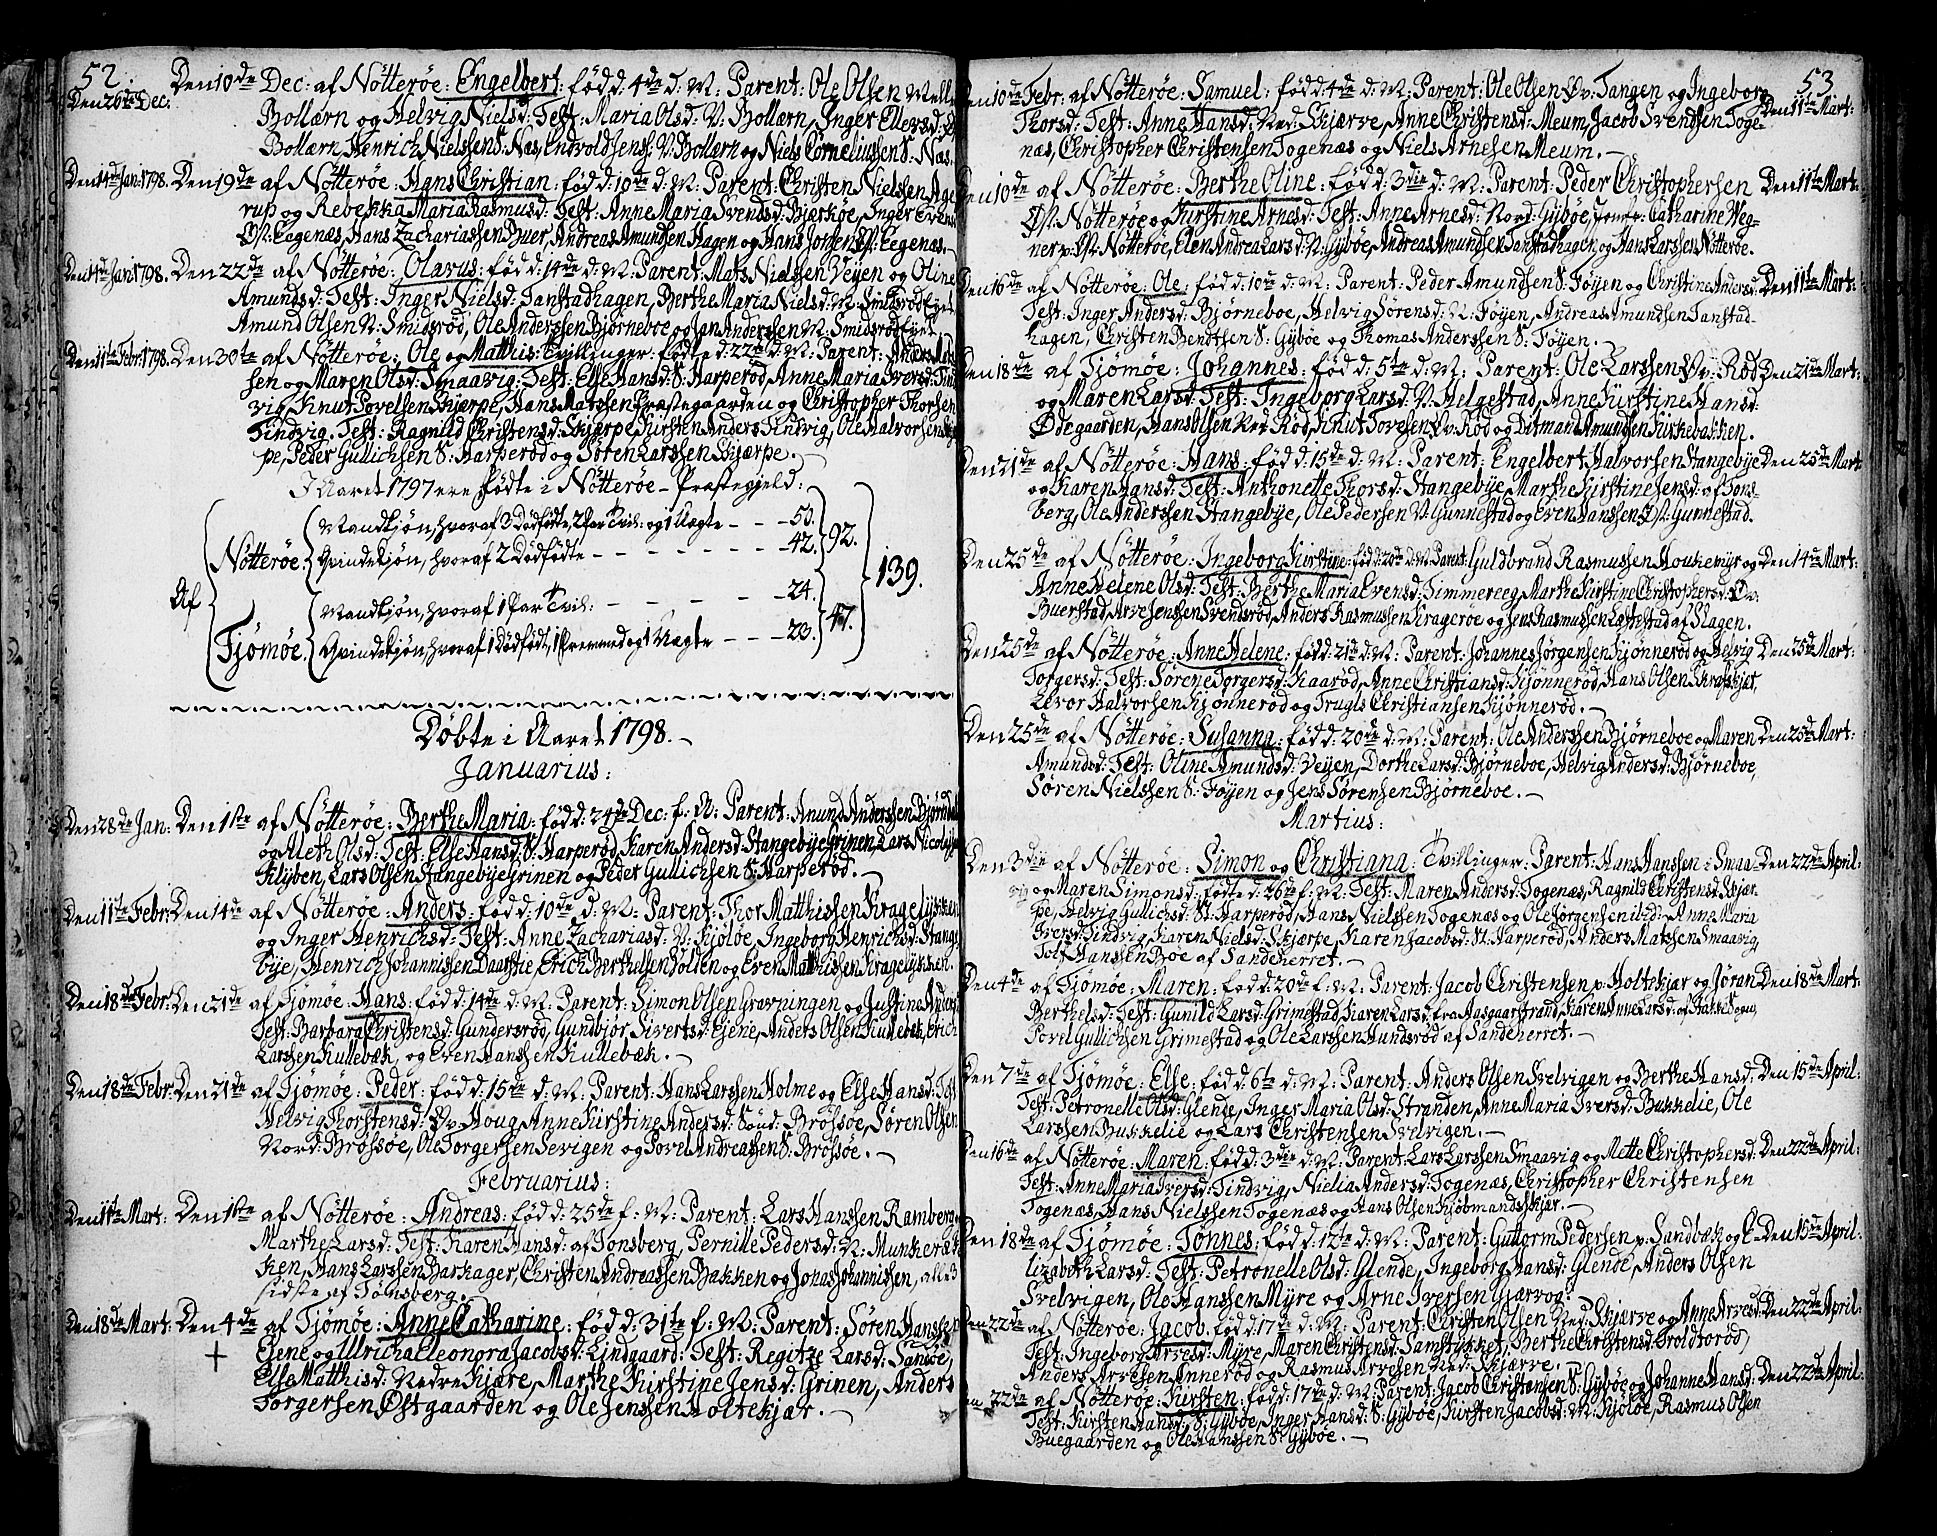 52.
Den 10de Dec: af Nötteröe: Engelbert: föd d: 4de d: M: Parent: Ole Olsen Melle
Den 26de Dec:
Bollærn og Helvig Nielsd: Test: Maria Olsd: V: Bollærn, Inger Ellevsd: Ø
Bollærn, Henrich Nielssen S: Næs, Endvold Jens: V: Bollærn og Niels Corneliussen S: Næs.
Den 14de Jan: 1798. Den 19de af Nötteröe: Hans Christian: föd d: 10de d: M: Parent: Christen Nielssen Age
rup og Rebekka Maria Rasmusd: Test: Anne Maria Svendsd: Bjerköe, Inger Evensd
Øst: Eegenæs, Hans Zachariassen Buer, Andreas Amundsen Hagen og Hans Jonsen Øst: Eegenæs.
Den 14de Jan: 1798. Den 22de af Nötteröe: Olavus: föd d: 14de d: M: Parent: Mats Nielssen Veyen og Oline
Amundsd: Test: Inger Nielsd: Tanstadhagen, Berthe Maria Nielsd: N: Smidsröd Eyet
Amund Olsen N: Smidsröd, Ole Anderssen Björneboe og Jan Anderssen N: Smidsröd Eyet
Den 11te Febr: 1798. Den 30te af Nötteröe: Ole og Matthis: Tvillinger: födte d: 22de d: M: Parent: Anders Mats
sen og Maren Olsd: Smaavig: Test: Else Hansd: S: Harperöd, Anne Maria Iversd: Tind
vig, Knut Povelsen Skjerpe, Hans Matssen Præstegaarden og Christopher Thorsen
Tindvig. Test: Ragnild Christensd: Skjærpe, Kirsten Anders Tindvig, Ole Halvorsen Skjer
pe, Peder Gullichsen S: Harperöd og Sören Larssen Skjærpe.
I Aaret 1797 ere Födte i Nötteröe-Præstegjeld:
Af Nötteröe. Mandkjön, hvoraf 3 Dödfödte, 2 Par Tvil: og 1 Uægte - - - 50. 92. 139.
Qvindekjön, hvoraf 2 Dödfödte - - - 42.
Tjömöe. Mandkjön, hvoraf 1 Par Tvil: - - - 24. 47.
Qvindekjön, hvoraf 1 Dödfödt, 1 Fremmed og 1 Uægte - - - 23.
Döbte i Aaret 1798.
Januarius:
Den 28de Jan: Den 1ste af Nötteröe: Berthe Maria: föd d: 24de Dec: f: A: Parent: Anund Anderssen Björndal
og Aleth Olsd: Test: Else Hansd: S: Harperöd, Karen Andersd: Stangebye Grinen, Lars Nicolaysen
Klyben, Lars Olsen Stangebye Grinen og Peder Gullichsen S: Harperöd.
Den 11te Febr: Den 14de af Nötteröe: Anders: föd d: 10de d: M: Parent: Thor Matthissen Kragelykken
og Inger Henrichsd: Test: Anne Zachariasd: V: Kjölöe, Ingeborg Henrichsd: Stange
bye, Henrich Johannissen Daarstie, Erich Berthelsen Jolten og Even Matthissen Kragelykken.
Den 18de Febr: Den 21de af Tjömöe: Hans: föd d: 14de d: M: Parent: Simon Olsen Grovningen og Justine Andersd:
Test: Barbara Christensd: Gundersröd, Gundbjor Sivertsd: Ejene, Anders Olsen Kullebæk, Erich
Larssen Kullebæk, og Even Hanssen Kullebæk.
Den 18de Febr: Den 21de af Tjömöe: Peder: föd d: 15de d: M: Parent: Hans Larssen Holme og Else Hansd: Test
Helvig Thorstensd: Øv: Houg, Anne Kirstine Andersd: Sönd: Brössöe, Sören Olsen
Nord: Brössöe, Ole Torgersen Sevigen og Povel Andreassen S: Brössöe.
Februarius:
Den 11te Mart: Den 1ste af Nötteröe: Andreas: föd d: 25de f: M: Parent: Lars Hanssen Ramberg,
Marthe Larsd: Test: Karen Hansd: af Tönsberg, Pernille Pedersd: N: Munkeræk
ken, Hans Larssen Barkager, Christen Andreassen Bakken og Jonas Johannissen, alle 3
sidste af Tönsberg.
Den 18de Mart: Den 4de af Tjömöe: Anne Catharine: föd d: 31te f: M: Parent: Sören Hanssen
+ Ejene og Ulricha Eleonora Jacobsd: Lindgaard: Test: Regitze Larsd: Sandöe,
Else Matthisd: Nedre Kjære, Marthe Kirstine Jensd: Grinen, Anders
Torgersen Østgaarden og Ole Jenssen Holtekjær.
53.
Den 10de Febr: af Nötteröe: Samuel: föd d: 4de d: M: Parent: Ole Olsen Øv: Tangen og Ingeborg Den 11te Mart:
Thorsd: Test: Anne Hansd: Ned: Skjærve, Anne Christensd: Meum, Jacob Svendsen Toge-
næs, Christopher Christensen Togenæs og Niels Arnesen Meum.
Den 10de af Nötteröe: Berthe Oline: föd d: 3die d: M: Parent: Peder Christophersen Den 11te Mart:
Øst: Nötteröe og Kirstine Arnesd: Test: Anne Arnesd: Nord: Gyböe, Jomfr: Catharine Weg-
ner v: Øst: Nötteröe, Elen Andrea Larsd: N: Gyböe, Andreas Amundsen Tanstadhagen, og Hans Larssen Nötteröe.
Den 16de af Nötteröe: Ole: föd d: 10de d: M: Parent: Peder Amundsen S: Föyen og Christine Andersd: Den 11te Mart:
Test: Inger Andersd: Björneboe, Helvig Sörensd: N: Föyen, Andreas Amundsen Tanstad-
hagen, Christen Bendtsen S: Gyböe og Thomas Anderssen S: Föyen.
Den 18de af Tjömöe: Johannes: föd d: 5te d: M: Parent: Ole Larssen Øv: Röd Den 21de Mart:
og Maren Larsd: Test: Ingeborg Larsd: V: Helgestad, Anne Kirstine Hansd:
Ødegaarden, Hans Olsen Ned: Röd, Knut Tovesen Øv: Röd og Ditmar Amundsen Kirkebakken.
Den 21de af Nötteröe: Hans: föd d: 15de d: M: Parent: Engelbert Halvorsen Stangebye Den 25de Mart
og Karen Hansd: Test: Anthonette Thorsd: Stangebye, Marthe Kirstine Jensd: af Töns-
berg, Ole Anderssen Stangebye, Ole Pedersen V: Gunnestad og Even Hanssen Øst: Gunnestad.
Den 25de af Nötteröe: Ingeborg Kirstine: föd d: 20de d: M: Parent: Guldbrand Rasmussen Houkemyr og Den 14de Mart:
Anne Helene Olsd: Test: Berthe Maria Evensd: Timmereeg, Marthe Kirstine Christophersd: Øv:
Buerstad, Arve Jenssen Svendsröd, Anders Rasmussen Krageröe og Jens Rasmussen Løttestad af Slagen.
Den 25de af Nötteröe: Anne Helene: föd d: 21de d: M: Parent: Johannes Jörgensen Kjönneröd og Helvig Den 25de Mart:
Torgersd: Test: Sörene Torgersd: Kaaröd, Anne Christiansd: Kjönneröd, Hans Olsen Skrafskjær,
Levor Halvorsen Kjönneröd og Trugls Christiansen Kjönneröd.
Den 25de af Nötteröe: Susanna: föd d: 20de d: M: Parent: Ole Anderssen Björneboe og Maren Den 25de Mart:
Amundsd: Test: Oline Amundsd: Veyen, Dorthe Larsd: Björneboe, Helvig Andersd: Björneboe,
Sören Nielssen S: Föyen og Jens Sörensen Björneboe.
Martius:
Den 3die af Nötteröe: Simon og Christiana: Tvillinger: Parent: Hans Hanssen i Smaa- Den 22de April:
vig og Maren Simonsd: födte d: 26de f: M: Test: Maren Andersd: Togenæs, Ragnild Christensd: Skjær-
pe, Helvig Gulichsd: St: Harperöd, Hans Nielssen Togenæs og Ole Jörgensen ibid: Anne Maria
Iversd: Tindvig, Karen Nielsd: Skjærpe, Karen Jacobsd: St: Harperöd, Anders Matssen Smaavig,
Tolf Hanssen Böe af Sandeherret.
Den 4de af Tjömöe: Maren: föd d: 20de f: M: Parent: Jacob Christensen v: Holtekjær og Jöran Den 18de Mart:
Berthelsd: Test: Gunild Larsd: Grimestad, Karen Larsd: fra Aasgaarstrand, Karen Anne Larsd: af Stokke Sogn,
Povel Gullichsen Grimestad og Ole Larssen Hundsröd af Sandeherret.
Den 7de af Tjömöe: Else: föd d: 6te d: M: Parent: Anders Olsen Svelvigen og Berthe Hansd: Den 15de April:
Test: Petronelle Olsd: Glende, Inger Maria Olsd: Stranden, Anne Maria Iversd: Bukkelie, Ole
Larssen Bukkelie og Lars Christensen Svelvigen.
Den 16de af Nötteröe: Maren: föd d: 3die d: M: Parent: Lars Larssen Smaavig og Mette Christophersd: Den 22de April:
Test: Anne Maria Iversd: Tindvig, Nielia Andersd: Togenæs, Christopher Christensen
Togenæs, Hans Nielssen Togenæs og Hans Olsen Kjöbmandsskjær.
Den 18de af Tjömöe: Tönnes: föd d: 12te d: M: Parent: Guttorm Pedersen v: Sundbæk og E- Den 15de April:
lizabeth Larsd: Test: Petronelle Olsd: Glende, Ingeborg Hansd: Glende, Anders Olsen
Svelvigen, Ole Hanssen Myre og Arne Iversen Gjærvog.
Den 22de af Nötteröe: Jacob: föd d: 17de d: M: Parent: Christen Olsen Ned: Skjærve og Anne Arvesd: Den 22de April:
Test: Ingeborg Arvesd: Myre, Maren Christensd: Samstykket, Berthe Christensd: Troldtoröd,
Anders Arvesen Enneröd og Rasmus Arvesen Ned: Skjærve.
Den 22de af Nötteröe: Kirsten: föd d: 17de d: M: Parent: Jacob Christensen S: Gyböe og Johanne Hansd: Den 22de April:
Test: Kirsten Hansd: S: Gyböe, Inger Hansd: S: Gyböe, Kirsten Jacobsd: M: Kjölöe, Rasmus Olsen
Buegaarden og Ole Hanssen S: Gyböe.